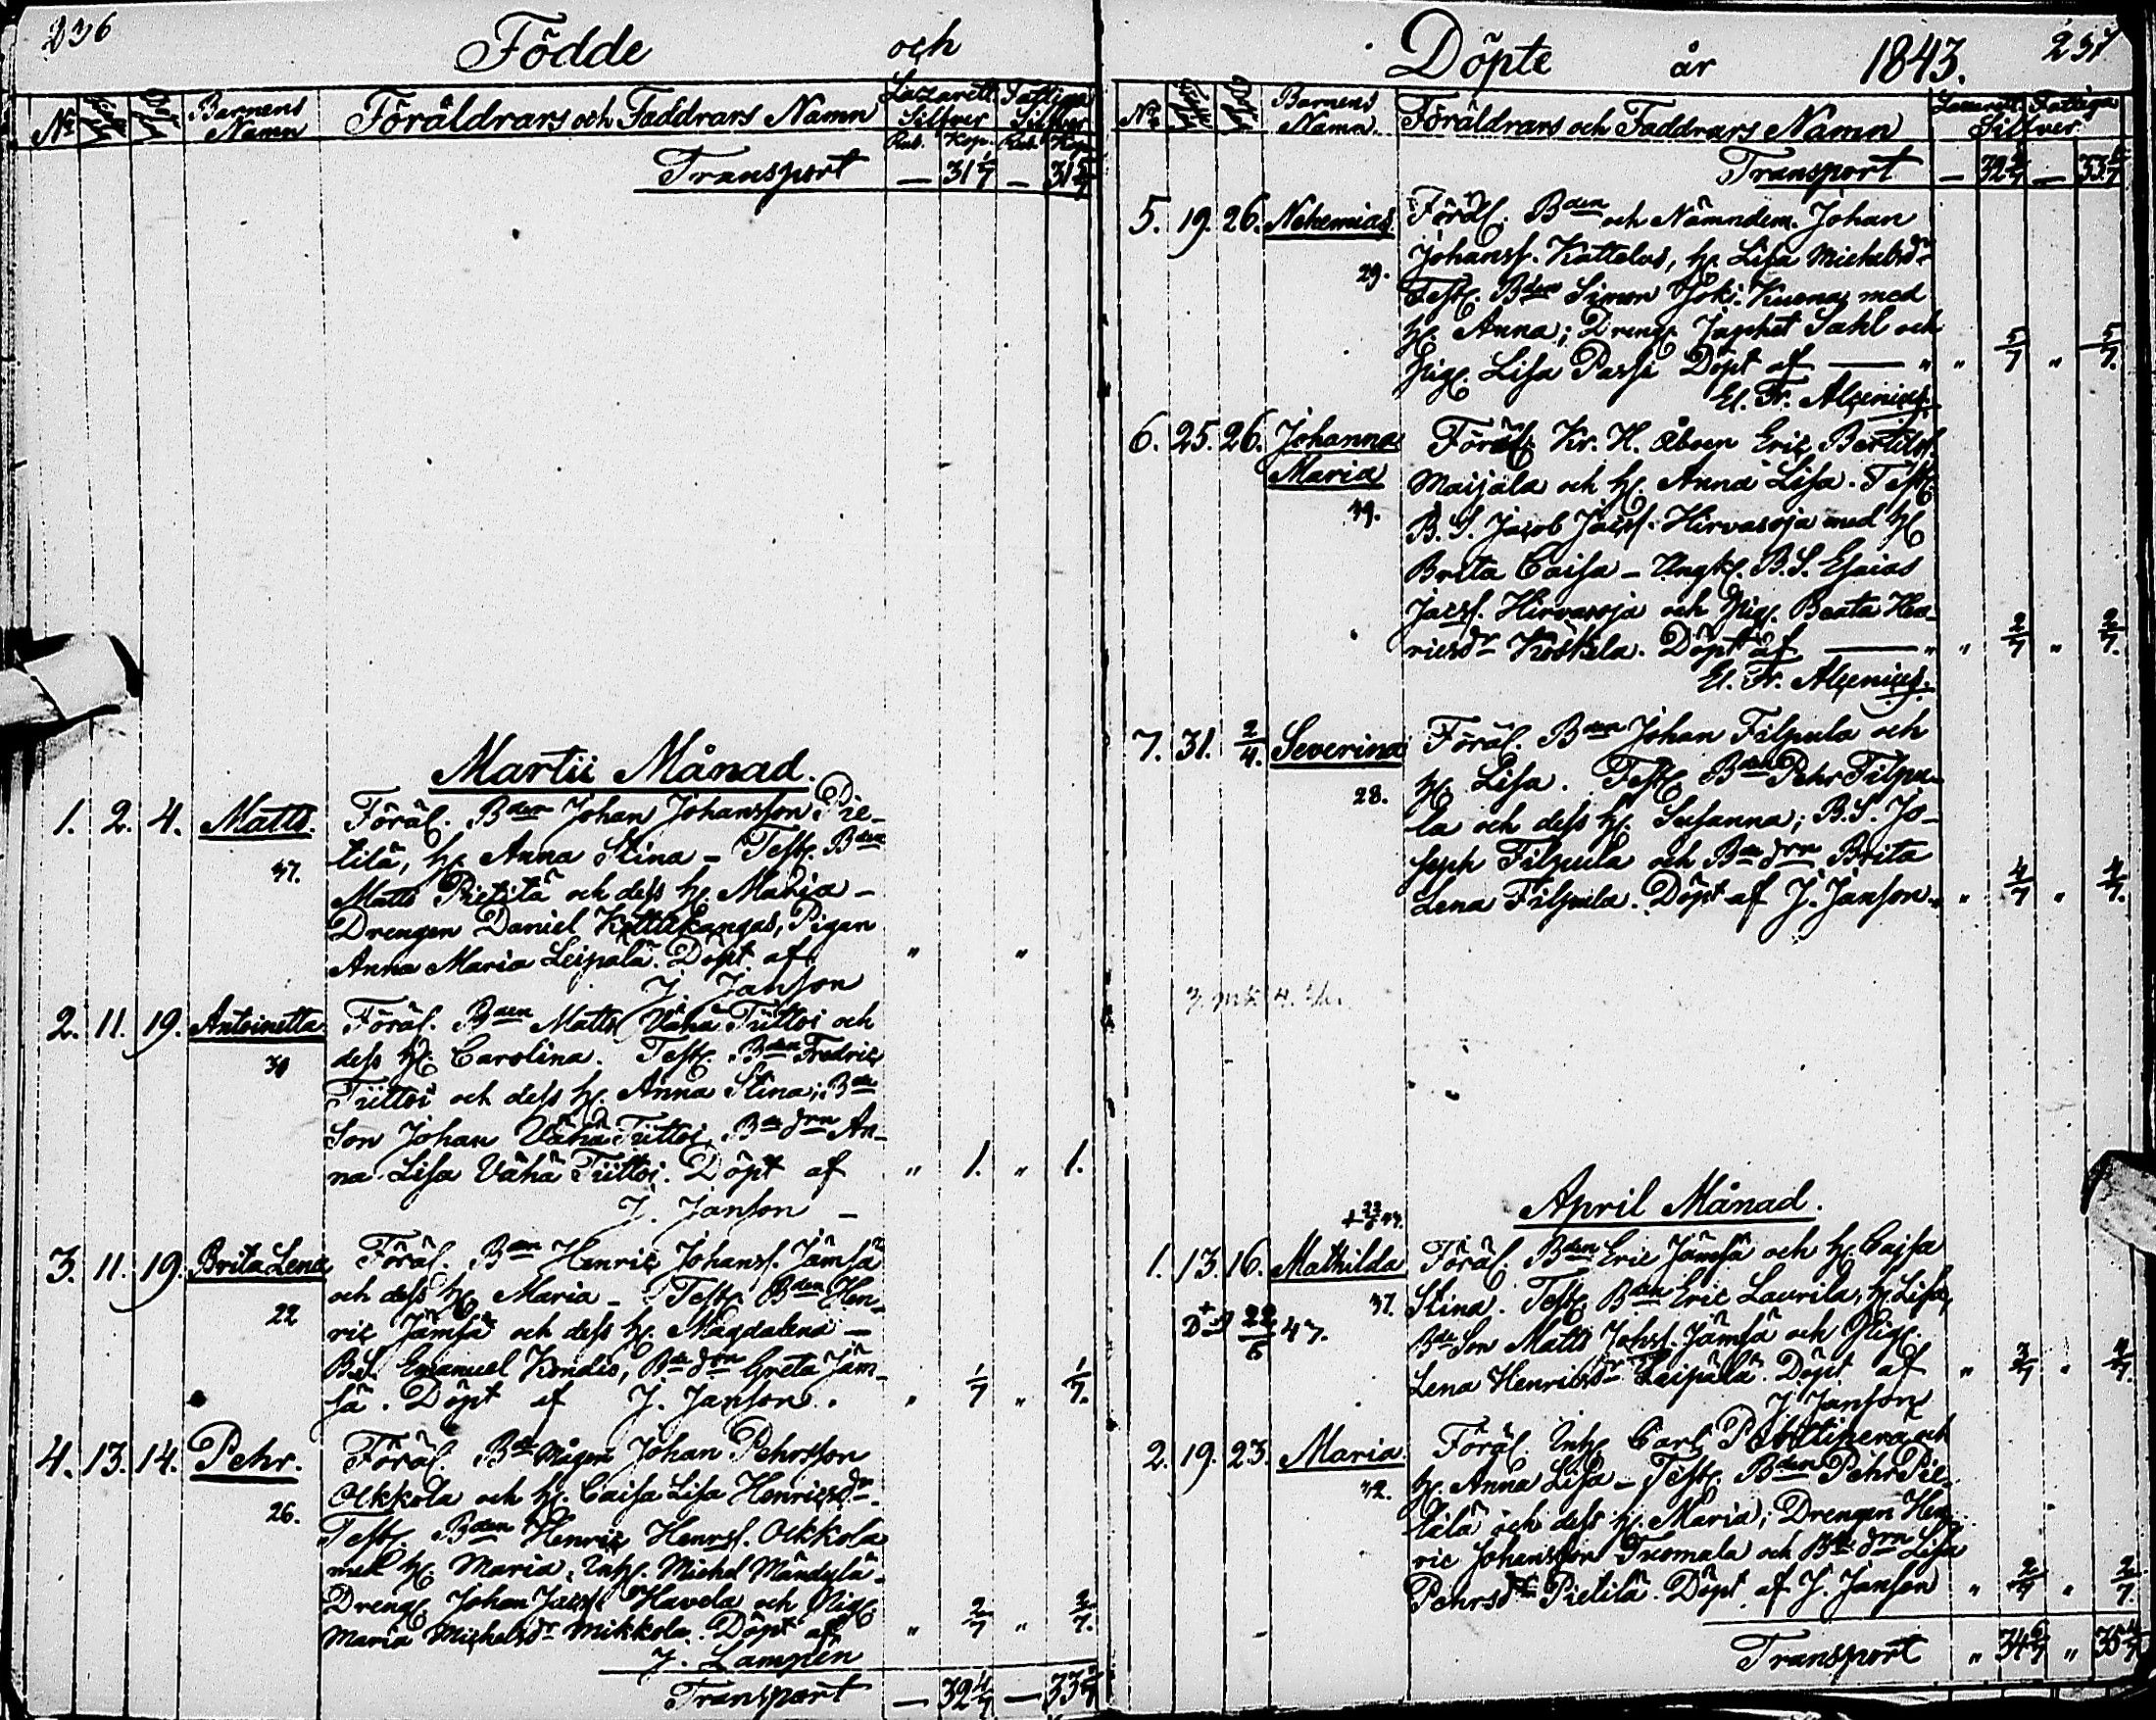 236
Födde och
Nº Barnens Namn Föräldrars och Faddrars Namn Lazarett Silfver Fattiga Silfver
Rub. Kop. Rub. Kop.
Transport — 31 1/7 — 31 5/7
Martii Månad.
1. 2. 4. Matts. Föräl. Bden Johan Johansson Pie-
37. tilä, h. Anna Stina – Test. Bden
Matts Pietilä och dess h. Maria –
Drengen Daniel Kettukangas, Pigan
Anna Maria Leipälä. Döpt af " "
J. Janson
2. 11. 19. Antoinetta Föräl. Bden Matts Vähä Tiittoi och
30 dess h. Carolina. Test. Bden Fredric
Tiittoi och dess h. Anna Stina; Bde
Son Johan Vähä Tiittoi, Bde drn An-
na Lisa Vähä Tiittoi. Döpt af " 1. " 1.
J. Janson –
3. 11. 19. Brita Lena Föräl. Bden Henric Johanss. Jämsä
22 och dess h. Maria – Test. Bden Hen-
ric Jämsä och dess h. Magdalena –
B.S. Emanuel Kondis, Bde drn Greta Jäm-
sä. Döpt af J. Janson. " 1/7 " 1/7.
4. 13. 14. Pehr. Föräl. Bde Mågen Johan Pehrsson
Ockkola och h. Caisa Lisa Henricsdr.
26. Test. Bden Henric Henrss. Ockkola
med h. Maria, Inh. Michel Mändylä.
Dreng. Johan Jacss. Havela och Pig.
Maria Michelsdr Mikkola. Döpt af " 2/7 " 2/7.
J. Lampén
Transport — 32 4/7 — 33
237
Döpte år 1843.
Nº Barnens Namn. Föräldrars och Faddrars Namn Lazarett. Fattiga
Silfver
Transport — 32 4/7 — 33
5. 19. 26. Nehemias. Föräl. Bden och Nämndem. Johan
Johanss. Kattelus, h. Lisa Michelsdr
29. Test. Bden Simon Joki-Kuona med
h. Anna; Dreng. Japhet Sahl och
Pig. Lisa Passi Döpt af — " " 5/7 " 5/7.
El. Fr. Alcenius.
6. 25. 26. Johanna Föräl. Kr. H. Åboen Eric Bertilss.
Maria Maijala och h. Anna Lisa. Test.
39. B. S. Jacob Jacss. Hirvasoja med h.
Brita Caisa – Ungk. B.S. Esaias
Jacss. Hirvasoja och Pig. Beata Hen-
ricsdr Koskela. Döpt af — " " 2/7 " 2/7.
El. Fr. Alcenius.
7. 31. 2/4. Severina Föräl. Bden Johan Filpula och
28. h. Lisa. Test. Bden Pehr Filpu-
la och dess h. Susanna; B.S. Jo-
seph Filpula och Bde drn Brita
Lena Filpula. Döpt af J. Janson. " " 4/7 " 4/7.
April Månad.
1. 13. 16. Mathilda Föräl. Bden Eric Jämsä och h. Cajsa
37. Stina. Test. Bden Eric Laurila, h. Lisa,
22/6 47. Bde Son Matts Johss. Jämsä och Pig.
Lena Henricsdr Leipälä. Döpt af " "
J. Janson
2. 19. 23. Maria. Föräl. Inh. Carl och
32. h. Anna Lisa – Test. Bden Pehr Pie-
tilä och dess h. Maria; Drengen Hen-
ric Johansson Tuomala och Bde drn Lisa
Pehrsdr Pietilä. Döpt af J. Janson " 2/7 " 2/7.
Transport " 34 " 35